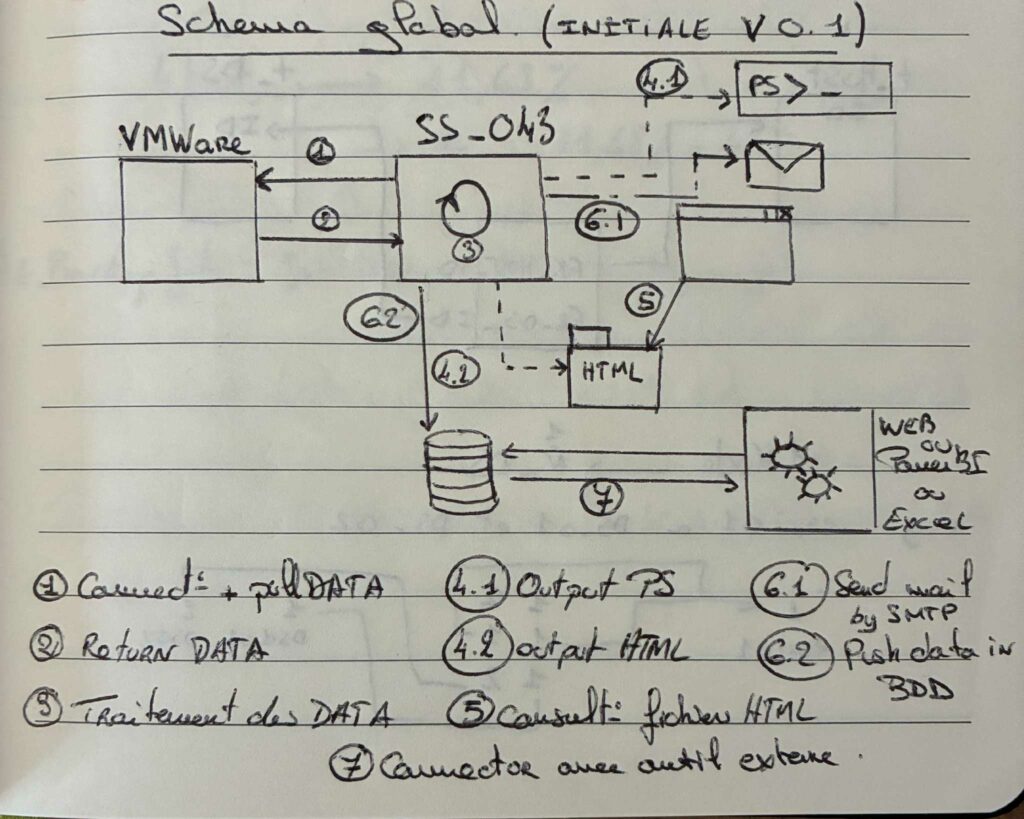 Schema global (INITIALE V 0.1)
4.1
PS> _
VMWare
SS_043
1
2
3
6.1
5
6.2
4.2
HTML
7
WEB
ou
PowerBI
ou
Excel
1 Connect° + pull DATA
4.1 Output PS
6.1 Send mail
by SMTP
2 Return DATA
4.2 output HTML
6.2 Push data in
BDD
3 Traitement des DATA
5 Consult° fichier HTML
7 Connector avec outil externe.